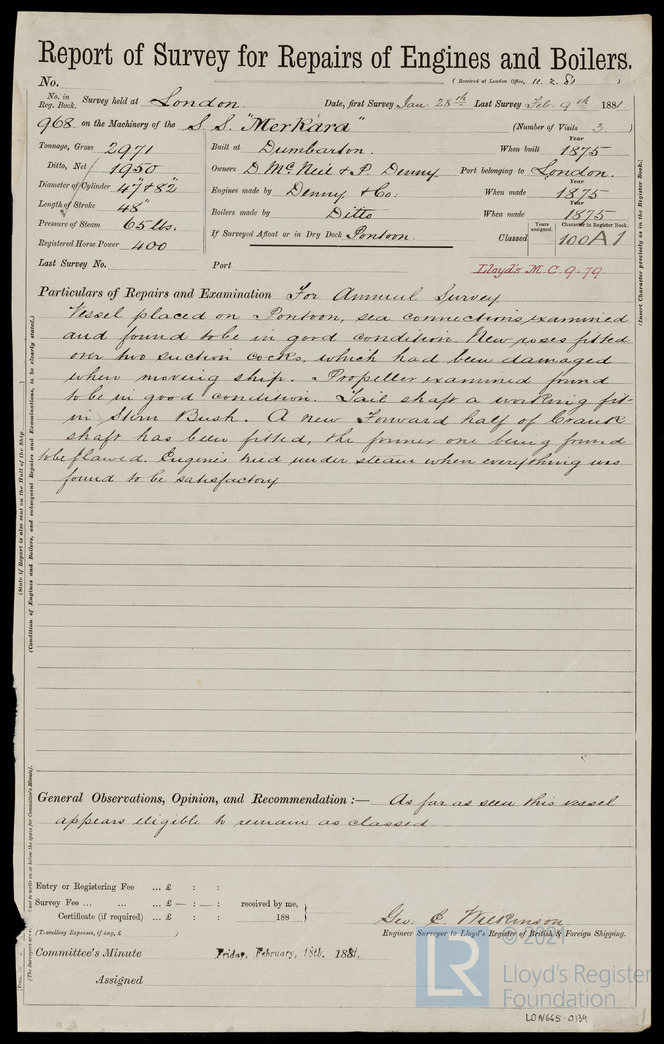 Report of Survey for Repairs of Engines and Boilers.
No. (Received at London Office, 11.2.81 )
No. in Reg. Book. Survey held at London. Date, first Survey Jan 28th Last Survey Feb. 9th 1881
968 on the Machinery of the S.S. "Merkara" (Number of Visits 3 )
Tonnage, Gross 2971 Built at Dumbarton. When built Year 1875
Ditto, Net 1950 Owners D. McNeil & P. Denny Port belonging to London.
Diameter of Cylinder 47" & 82" Engines made by Denny & Co: When made Year 1875
Length of Stroke 48" Boilers made by Ditto When made Year 1875
Pressure of Steam 65 lbs. If Surveyed Afloat or in Dry Dock Pontoon. Classed Years assigned. Character in Register Book. 100A1
Registered Horse Power 400
Last Survey No. Port Lloyd's M.C. 9.79
Particulars of Repairs and Examination For Annual Survey
Vessel placed on Pontoon, sea connections examined
and found to be in good condition. New roses fitted
over two suction cocks, which had been damaged
when moving ship. Propeller examined found
to be in good condition. Tail shaft a working fit
in Stern Bush. A new Forward half of Crank
shaft has been fitted, the former one being found
to be flawed. Engines tried under steam when everything was
found to be satisfactory
General Observations, Opinion, and Recommendation :— As far as seen this vessel
appears eligible to remain as classed
Entry or Registering Fee ... £ : :
Survey Fee ... ... ... £ — : — : received by me,
Certificate (if required) ... £ : : 188
(Travelling Expenses, if any, £ )
Geo. C. Wilkinson
Engineer Surveyor to Lloyd's Register of British & Foreign Shipping.
Committee's Minute Friday, February, 18th, 1881.
Assigned
(State if Report is also sent on the Hull of the Ship )
(Condition of Engines and Boilers, and subsequent Repairs and Examinations, to be clearly stated.)
(Insert Character precisely as in the Register Book.)
LR
© 2021
Lloyd's Register
Foundation
LON665-0139